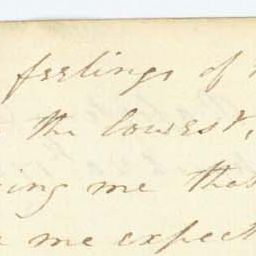 feelings of
the lowest,
ing me that
me expect